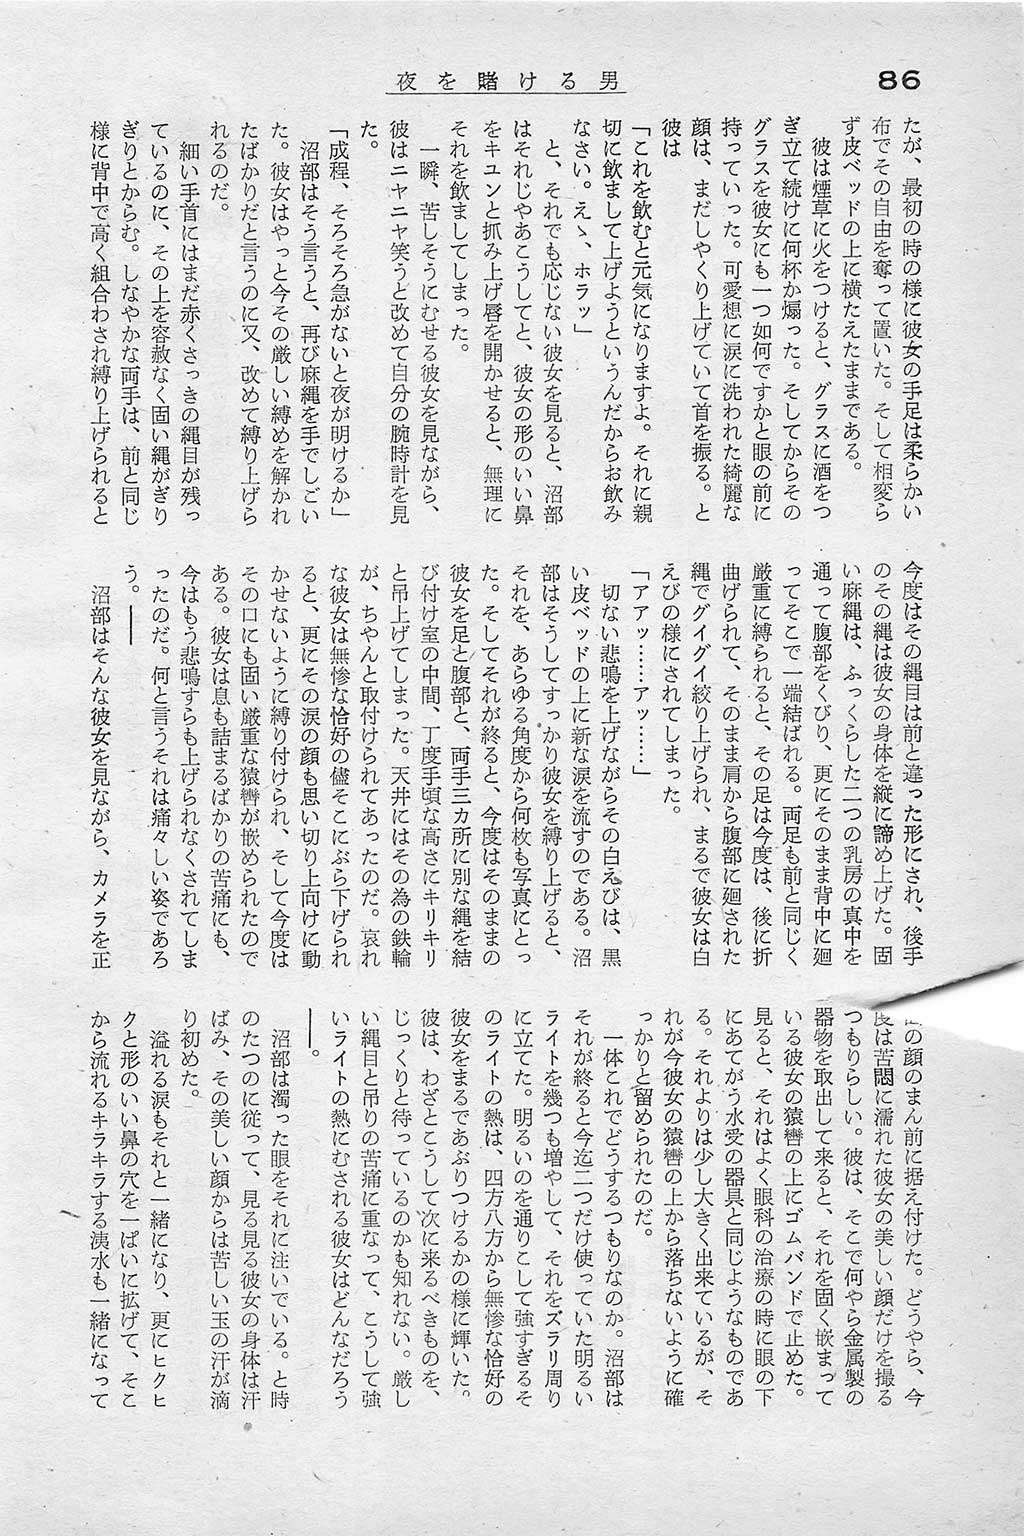 86
夜を賭ける男
たが、最初の時の様に彼女の手足は柔らかい
布でその自由を奪って置いた。そして相変ら
ず皮ベッドの上に横たえたままである。
彼は煙草に火をつけると、グラスに酒をつ
ぎ立て続けに何杯か煽った。そしてからその
グラスを彼女にも一つ如何ですかと眼の前に
持っていった。可愛想に涙に洗われた綺麗な
顔は、まだしやくり上げていて首を振る。と
彼は
「これを飲むと元気になりますよ。それに親
切に飲まして上げようというんだからお飲み
なさい。えゝ、ホラッ」
と、それでも応じない彼女を見ると、沼部
はそれじやあこうしてと、彼女の形のいい鼻
をキユンと抓み上げ唇を開かせると、無理に
それを飲ましてしまった。
一瞬、苦しそうにむせる彼女を見ながら、
彼はニヤニヤ笑うと改めて自分の腕時計を見
た。
「成程、そろそろ急がないと夜が明けるか」
沼部はそう言うと、再び麻縄を手でしごい
た。彼女はやっと今その厳しい縛めを解かれ
たばかりだと言うのに又、改めて縛り上げら
れるのだ。
細い手首にはまだ赤くさっきの縄目が残っ
ているのに、その上を容赦なく固い縄がぎり
ぎりとからむ。しなやかな両手は、前と同じ
様に背中で高く組合わされ縛り上げられると
今度はその縄目は前と違った形にされ、後手
のその縄は彼女の身体を縦に諦め上げた。固
い麻縄は、ふっくらした二つの乳房の真中を
通って腹部をくびり、更にそのまま背中に廻
ってそこで一端結ばれる。両足も前と同じく
厳重に縛られると、その足は今度は、後に折
曲げられて、そのまま肩から腹部に廻された
縄でグイグイ絞り上げられ、まるで彼女は白
えびの様にされてしまった。
「アアッ……アッ……」
切ない悲鳴を上げながらその白えびは、黒
い皮ベッドの上に新な涙を流すのである。沼
部はそうしてすっかり彼女を縛り上げると、
それを、あらゆる角度から何枚も写真にとっ
た。そしてそれが終ると、今度はそのままの
彼女を足と腹部と、両手三カ所に別な縄を結
び付け室の中間、丁度手頃な高さにキリキリ
と吊上げてしまった。天井にはその為の鉄輪
が、ちやんと取付けられてあったのだ。哀れ
な彼女は無惨な恰好の儘そこにぶら下げられ
ると、更にその涙の顔も思い切り上向けに動
かせないように縛り付けられ、そして今度は
その口にも固い厳重な猿轡が嵌められたので
ある。彼女は息も詰まるばかりの苦痛にも、
今はもう悲鳴すらも上げられなくされてしま
ったのだ。何と言うそれは痛々しい姿であろ
う。――
沼部はそんな彼女を見ながら、カメラを正
の顔のまん前に据え付けた。どうやら、今
度は苦悶に濡れた彼女の美しい顔だけを撮る
つもりらしい。彼は、そこで何やら金属製の
器物を取出して来ると、それを固く嵌まって
いる彼女の猿轡の上にゴムバンドで止めた。
見ると、それはよく眼科の治療の時に眼の下
にあてがう水受の器具と同じようなものであ
る。それよりは少し大きく出来ているが、そ
れが今彼女の猿轡の上から落ちないように確
っかりと留められたのだ。
一体これでどうするつもりなのか。沼部は
それが終ると今迄二つだけ使っていた明るい
ライトを幾つも増やして、それをズラリ周り
に立てた。明るいのを通りこして強すぎるそ
のライトの熱は、四方八方から無惨な恰好の
彼女をまるであぶりつけるかの様に輝いた。
彼は、わざとこうして次に来るべきものを、
じっくりと待っているのかも知れない。厳し
い縄目と吊りの苦痛に重なって、こうして強
いライトの熱にむされる彼女はどんなだろう
――。
沼部は濁った眼をそれに注いでいる。と時
のたつのに従って、見る見る彼女の身体は汗
ばみ、その美しい顔からは苦しい玉の汗が滴
り初めた。
溢れる涙もそれと一緒になり、更にヒクヒ
クと形のいい鼻の穴を一ぱいに拡げて、そこ
から流れるキラキラする洟水も一緒になって